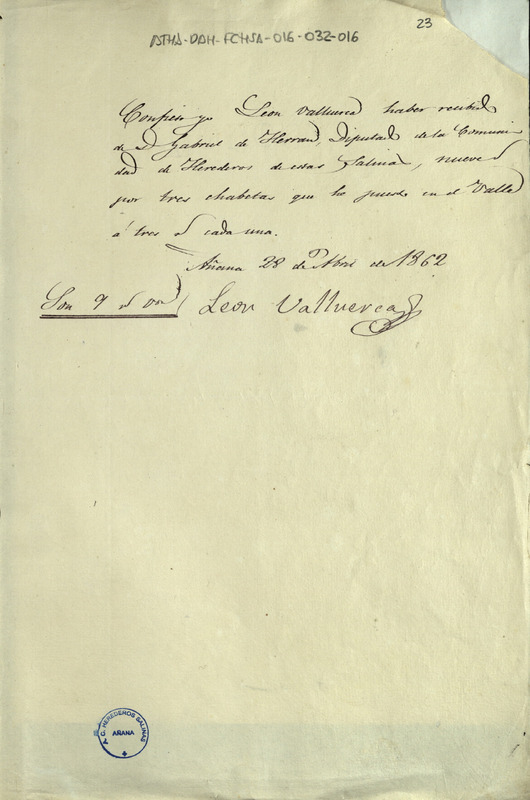 23
ATHA-DAH-FCHSA-016-032-016
Confieso yo Leon Valluerca haber recibido
de D Gabriel de Herran, Diputado de la Comuni
dad de Herederos de estas Salinas, nueve
por tres chabetas que he puesto en el Valle
á tres cada una.
Añana 28 de Abril de 1862
Son 9 Leon Valluerca
A. C. HEREDEROS SALINAS
AÑANA